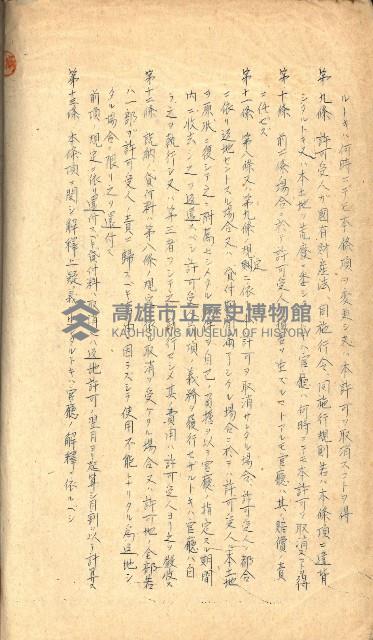 ルトキハ何時ニテモ本條項ヲ変更シ又ハ本許可ヲ取消スコトヲ得
第九條 許可受人ガ國有財産法、同施行令、同施行規則若ハ本條項ニ違背
シタルトキ又ハ本土地ヲ荒廃ニ委シタルトキハ官廳ハ何時ニテモ本許可ヲ取消スコトヲ得
第十條 前二條ノ場合ニ於テ許可受人ニ損害ヲ生ズルコトアルモ官廳ハ其ノ賠償ノ責
ニ任ゼズ
第十一條 第八條又ハ第九條ノ規定ニ依リ許可ヲ取消シタル場合、許可受人ノ都合
ニ依リ返地セントスル場合又ハ貸付期間満了シタル場合ニ於テハ許可受人ハ本土地
ヲ原状ニ復シ
自己ノ
ヲ以テ官廳ノ指定スル期間
内ニ收去シ之ヲ返還スベシ許可受人前項ノ義務ヲ履行セザルトキハ官廳ハ自
ラ之ヲ執行シ又ハ第三者ヲシテ之ヲ執行セシメ其ノ費用ハ許可受人ヨリ之ヲ徴收ス
第十二條 既納ノ貸付料ハ第八條ノ規定ニ依リ取消ヲ受ケタル場合又ハ許可地ノ全部若
ハ一部ガ許可受人ノ責ニ歸スベキ事由ニ因ラズシテ使用不能トナリタル為返地シ
タル場合ニ限リ之ヲ還付ス
前項ノ規定ニ依リ還付スベキ貸付料ハ取消又ハ返地許可ノ翌月ヨリ起算シ月割ヲ以テ計算ス
第十三條 本條項ニ関シ解釋上疑義ヲ生ジタルトキハ官廳ノ解釋ニ依ルベシ
高雄市立歷史博物館
KAOHSIUNG MUSEUM OF HISTORY